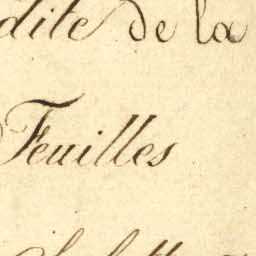 dite de la
Feuilles